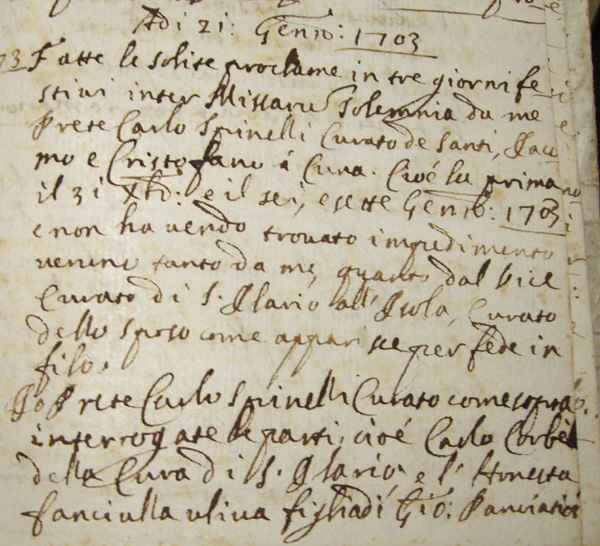 Adi 21: Genro: 1703
73 Fatte le solite proclame in tre giorni fe
stivi inter Missaru Solemnia da me
Prete Carlo Spinelli Curato de Santi, Jaco
mo e Cristofano á Cuna. Cioé la prima
il 31 Xbr: e il sei, e sette Genro: 1703
e non havendo trovato impedimento
veruno tanto da me, quanto dal Vice
Curato di S. Ilario all' Isola, Curato
dello Sposo come apparisce per fede in
filo.
Io Prete Carlo Spinelli Curato come sopra
interrogate le parti, cioé Carlo Corbel
della Cura di S. Ilario, e l' Honesta
fanciulla uliva figlia di Gio: Panciatici